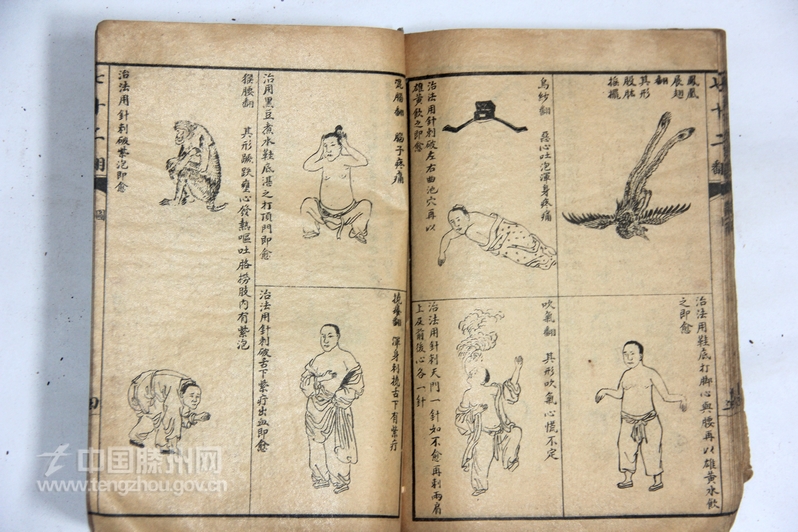 七十二翻
鳳凰
展翅
翻
其形
股肱
搧擺
治法用鞋底打脚心與腰再以雄黃水飲
之即愈
烏紗翻 惡心吐泡渾身疼痛
治法用針刺破左右曲池穴再以
雄黃飲之即愈
吹氣翻 其形吹氣心慌不定
治法用針刺天門一針如不愈再刺兩肩
上及前後心各一針
腦子疼痛
治用黑豆煮水鞋底湛之打頂門即愈
渾身刺撓舌下有紫疔
治法用針刺破舌下紫疔出血即愈
猴腰翻 其形
心發熱嘔吐胳撈肢內有紫泡
治法用針刺破紫泡即愈
七十二翻
圖
四
中国滕州网
www.tengzhou.gov.cn